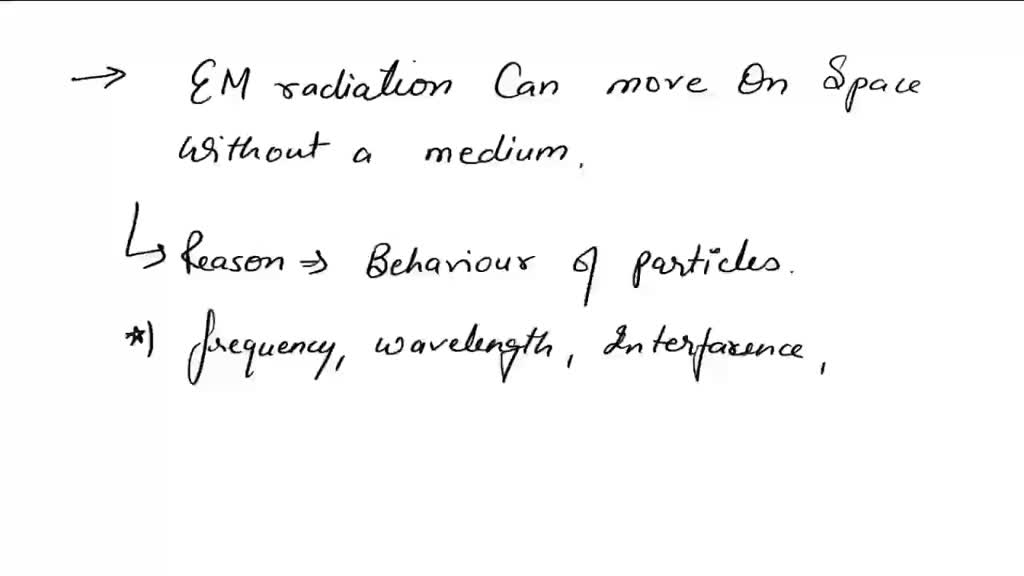 → EM radiation Can move On Space
without a medium.
↳ Reason ⇒ Behaviour of particles.
*) frequency, wavelength, Interfarence,